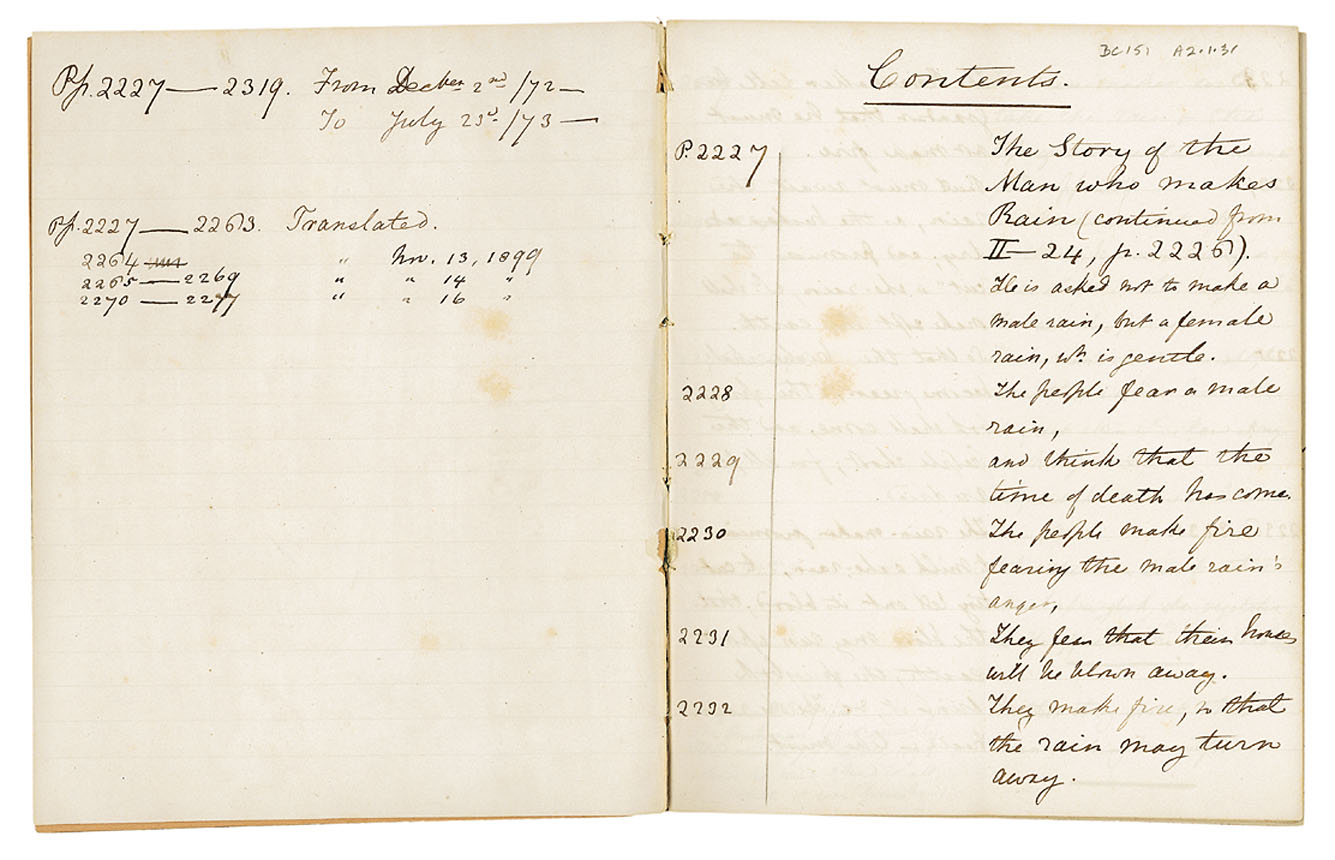 Pp. 2227 — 2319. From Decber 2nd /72 —
To July 23d /73 —
Pp. 2227 — 2263. Translated.
2264 " Nov. 13, 1899
2265 — 2269 " " 14 "
2270 — 2277 " " 16 "
BC151 A2.1.31
Contents.
P. 2227 The Story of the
Man who makes
Rain (continued from
II — 24, p. 2226).
He is asked not to make a
male rain, but a female
rain, wh. is gentle.
2228 The people fear a male
rain,
2229 and think that the
time of death has come.
2230 The people make fire
fearing the male rain's
anger,
2231 They fear that their houses
will be blown away.
2232 They make fire, so that
the rain may turn
away.